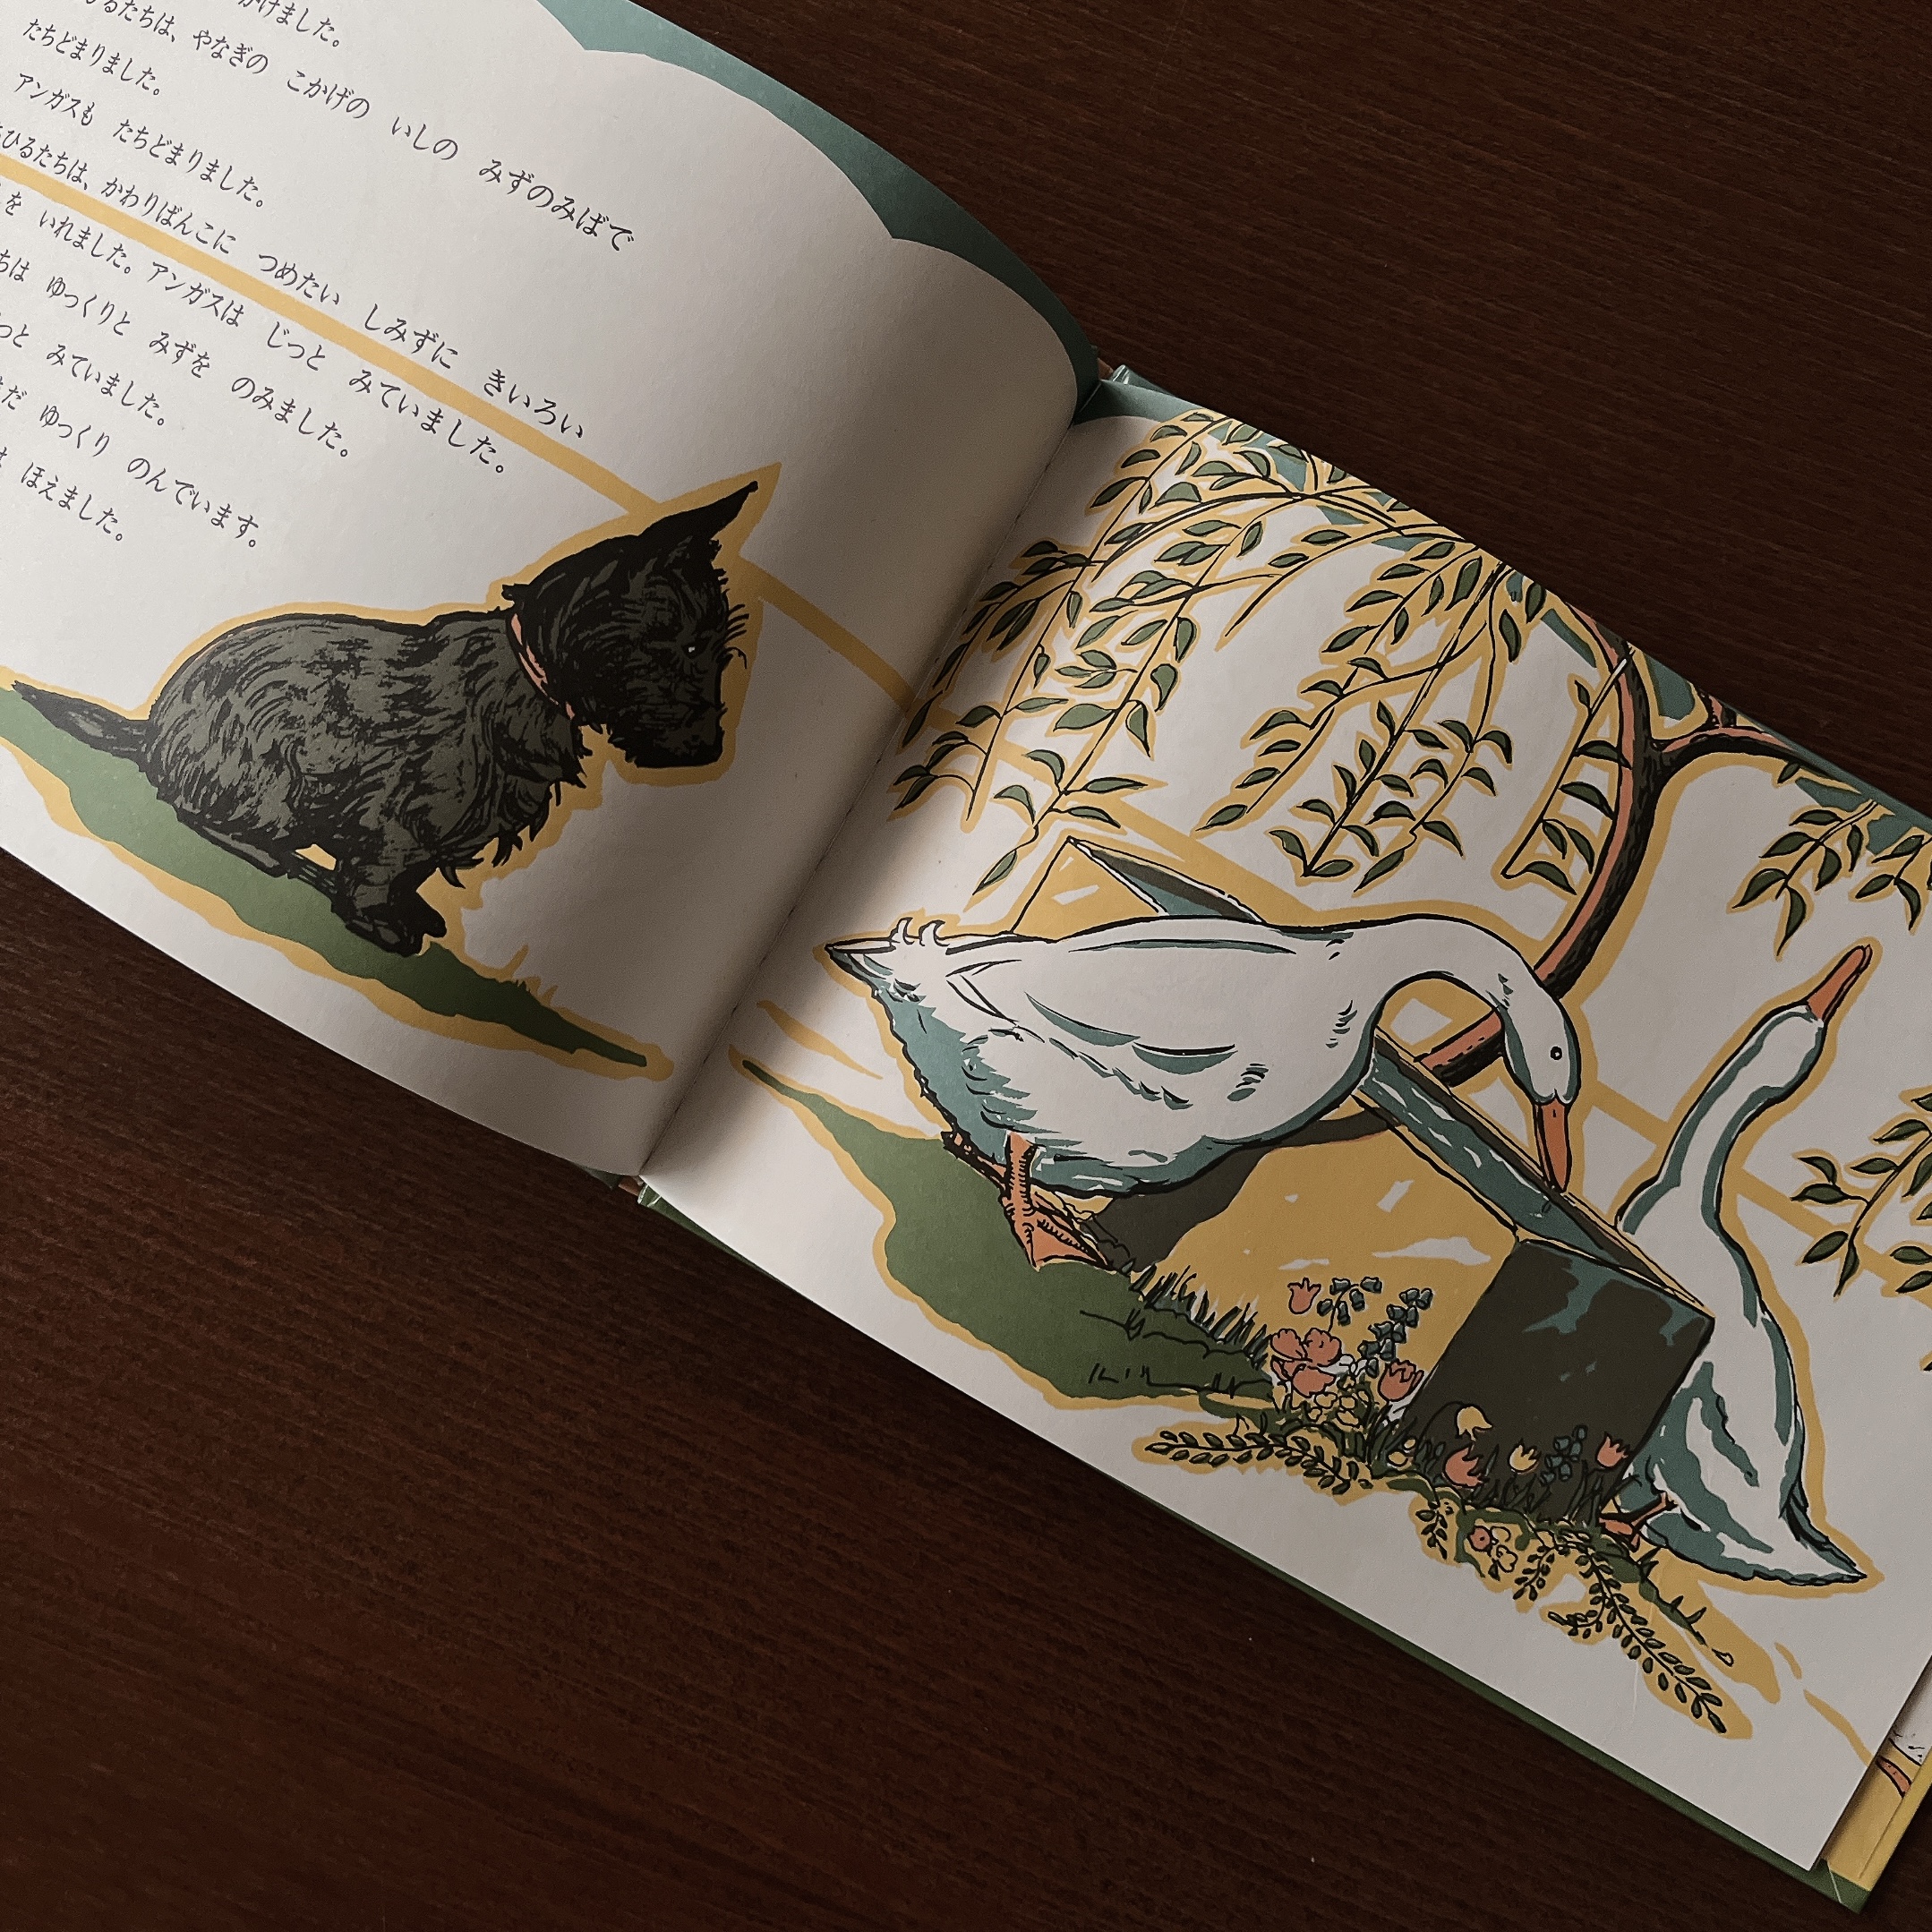 かけました。
るたちは、やなぎの こかげの いしの みずのみばで
たちどまりました。
アンガスも たちどまりました。
ひるたちは、かわりばんこに つめたい しみずに きいろい
を いれました。アンガスは じっと みていました。
ちは ゆっくりと みずを のみました。
っと みていました。
だ ゆっくり のんでいます。
ほえました。